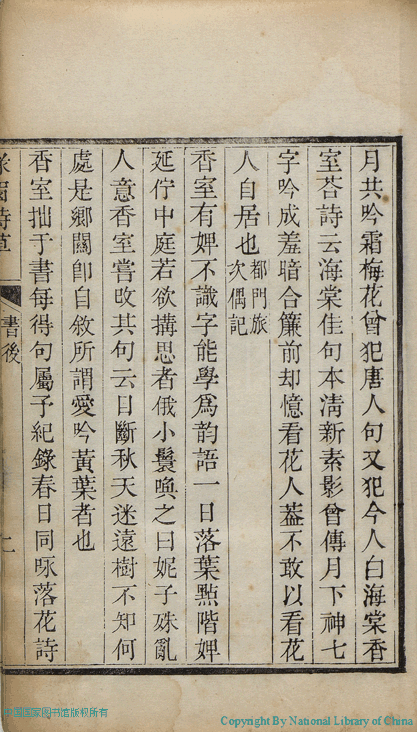 月共吟霜梅花曾犯唐人句又犯今人白海棠香
室荅詩云海棠佳句本清新素影曾傳月下神七
字吟成羞暗合簾前却憶看花人葢不敢以看花
人自居也
都門旅
次偶記
香室有婢不識字能學爲韵語一日落葉㸃階婢
延佇中庭若欲搆思者俄小鬟喚之曰妮子殊亂
人意香室嘗改其句云目斷秋天迷遠樹不知何
處是鄉關卽自敘所謂愛吟黃葉者也
香室拙于書每得句屬予紀錄春日同咏落花詩
詩草
書後
中国国家图书馆版权所有
Copyright By National Library of China